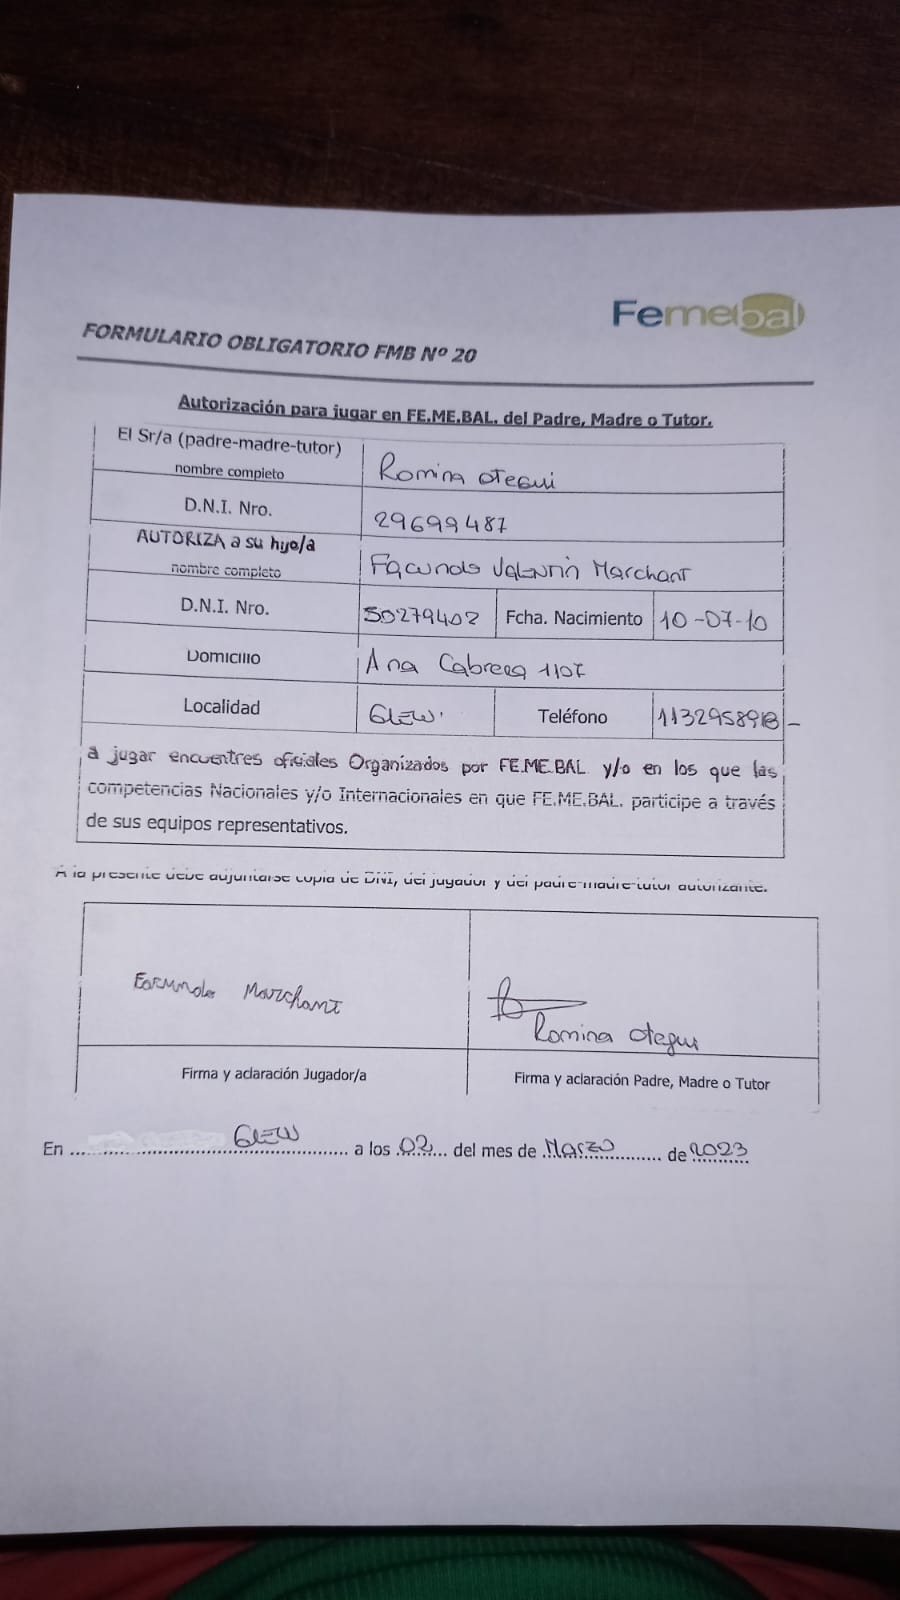 Femebal
FORMULARIO OBLIGATORIO FMB Nº 20
Autorización para jugar en FE.ME.BAL. del Padre, Madre o Tutor.
El Sr/a (padre-madre-tutor)
nombre completo
Romina Otegui
D.N.I. Nro.
29699487
AUTORIZA a su hijo/a
nombre completo
Facundo Valentin Marchant
D.N.I. Nro.
50279402
Fcha. Nacimiento
10-07-10
Domicilio
Ana Cabrera 1107
Localidad
GLEW.
Teléfono
11329589
a jugar encuentres oficiales Organizados por FE.ME.BAL y/o en los que las
competencias Nacionales y/o Internacionales en que FE.ME.BAL. participe a través
de sus equipos representativos.
A la presente debe adjuntarse copia de DNI, del jugador y del padre-madre-tutor autorizante.
Facundo Marchant
Romina Otegui
Firma y aclaración Jugador/a
Firma y aclaración Padre, Madre o Tutor
En ... GLEW ... a los .02... del mes de .Marzo... de 2023